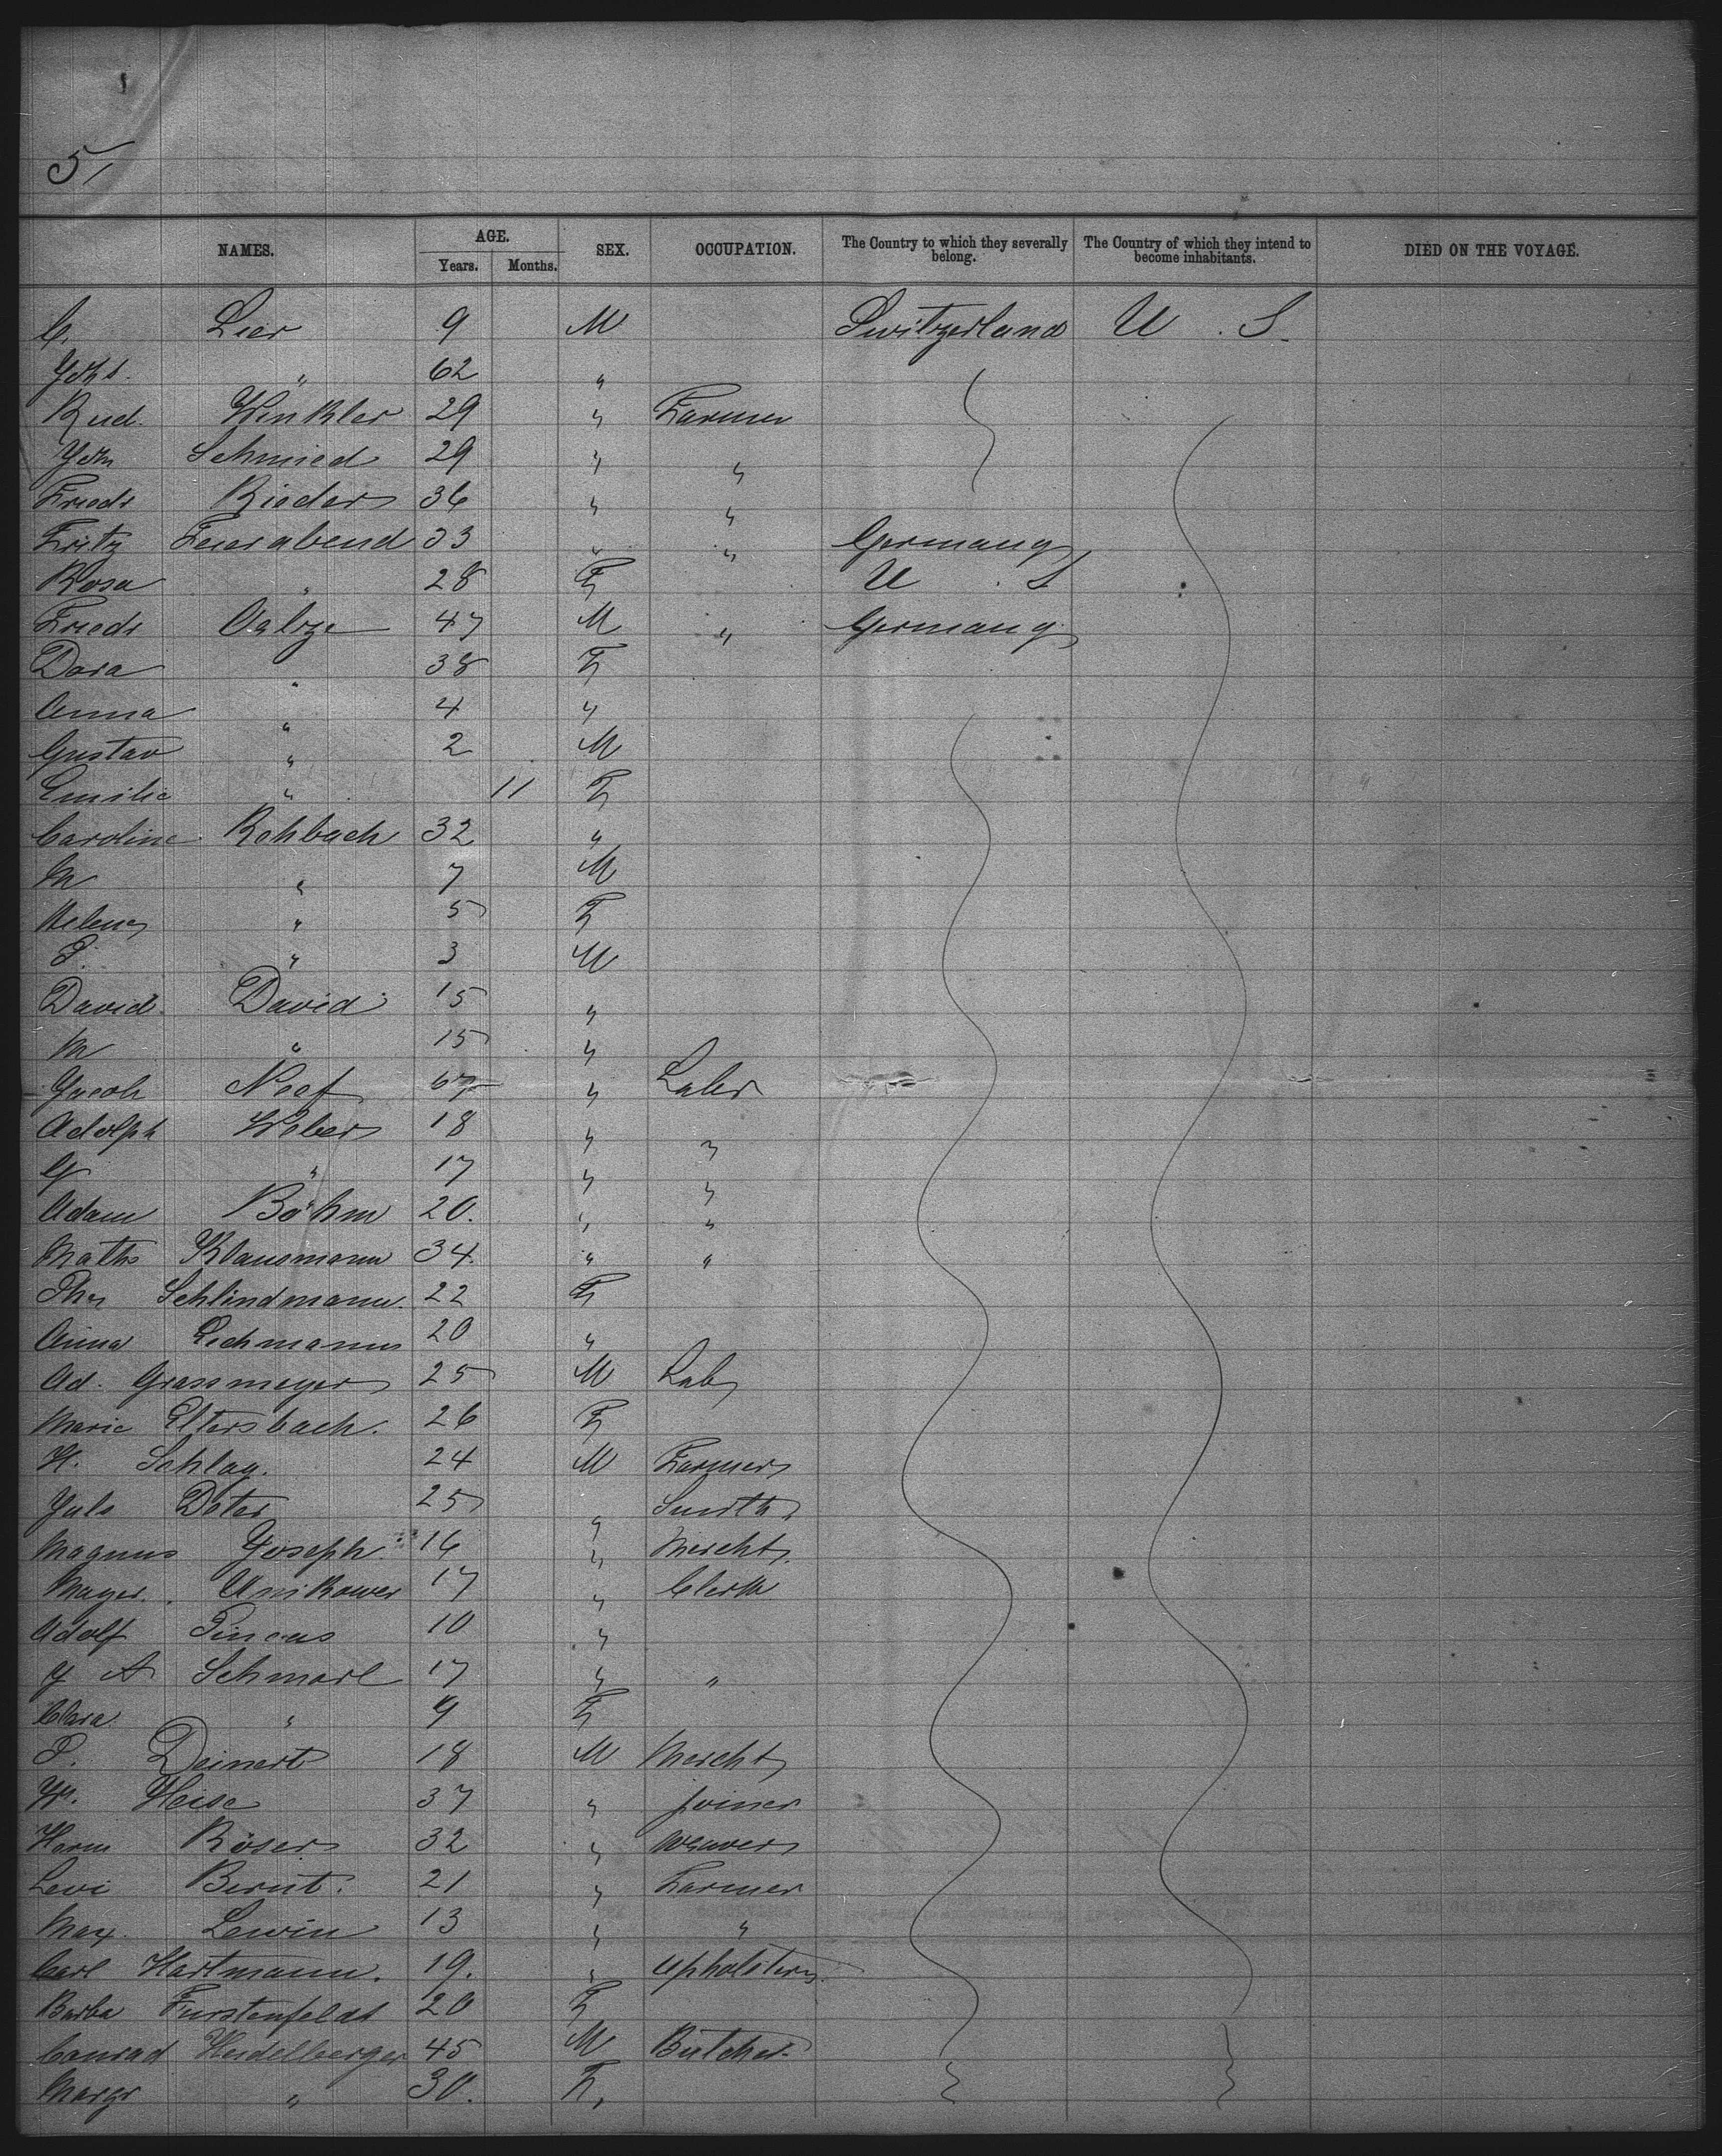 5/
NAMES. AGE. SEX. OCCUPATION. The Country to which they severally belong. The Country of which they intend to become inhabitants. DIED ON THE VOYAGE.
Years. Months.
C. Lier 9 M Switzerland U. S.
" 62 "
Rud. Winkler 29 " Farmer
Schmied 29 " "
Friedr Rieder 36 " "
Fritz Feierabend 33 " " Germany
Rosa " 28 F U. S
Friedr 47 M " Germany
Dora " 38 F
Anna " 4 "
Gustav " 2 M
Emilie " 11 F
Caroline Rohbach 32 "
M " 7 M
Helene " 5 F
P. " 3 M
David David 15 "
M " 15 "
Jacob Neef 67 " Labr
Adolph Weber 18 " "
G " 17 " "
Adam Böhm 20. " "
Maths Klausmann 34. " "
Schlindmann. 22 F
Anna Lechmann 20 "
Ad. Grassmeyer 25 M Lab
Marie Eltersbach. 26 F
H. Schlag. 24 M Farmer
Jul. Deter 25 " Smith
Magnus Joseph 16 " Mercht.
Mayer. Unikower 17 " Clerk
Adolf Pincus 10 "
J A Schmerl 17 " "
Clara " 9 F
P. Deinert 18 M Mercht
W. Heise 37 " joiner
Herm Röser 32 " weaver
Levi Bernt. 21 " Farmer
Max. Lewin 13 " "
Carl Hartmann. 19. " upholsterer
Barba Furstenfeldt 20 F
Conrad Heidelberger 45 M Butcher
Margr " 30. F